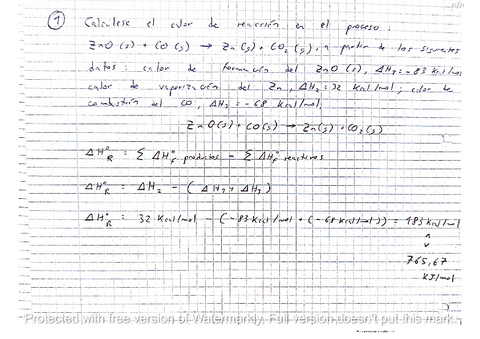 1 Calculese el calor de reacción en el proceso:
ZnO(s) + CO(g) → Zn(g) + CO₂(g), a partir de los siguientes
datos: calor de formación del ZnO(s), ΔH₁ = -83 Kcal/mol
calor de vaporización del Zn, ΔH₂ = 32 Kcal/mol; calor de
combustión del CO, ΔH₃ = -68 Kcal/mol
ZnO(s) + CO(g) → Zn(g) + CO₂(g)
ΔH°R = Σ ΔH°f productos - Σ ΔH°f reactivos
ΔH°R = ΔH₂ - (ΔH₁ + ΔH₃)
ΔH°R = 32 Kcal/mol - (-83 Kcal/mol + (-68 Kcal/mol)) = 183 Kcal/mol
765,67
KJ/mol
Protected with free version of Watermarkly. Full version doesn't put this mark.